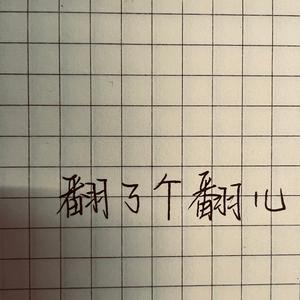 翻了个翻儿